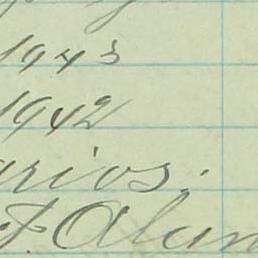 1943
1942
arios.
J. Alan